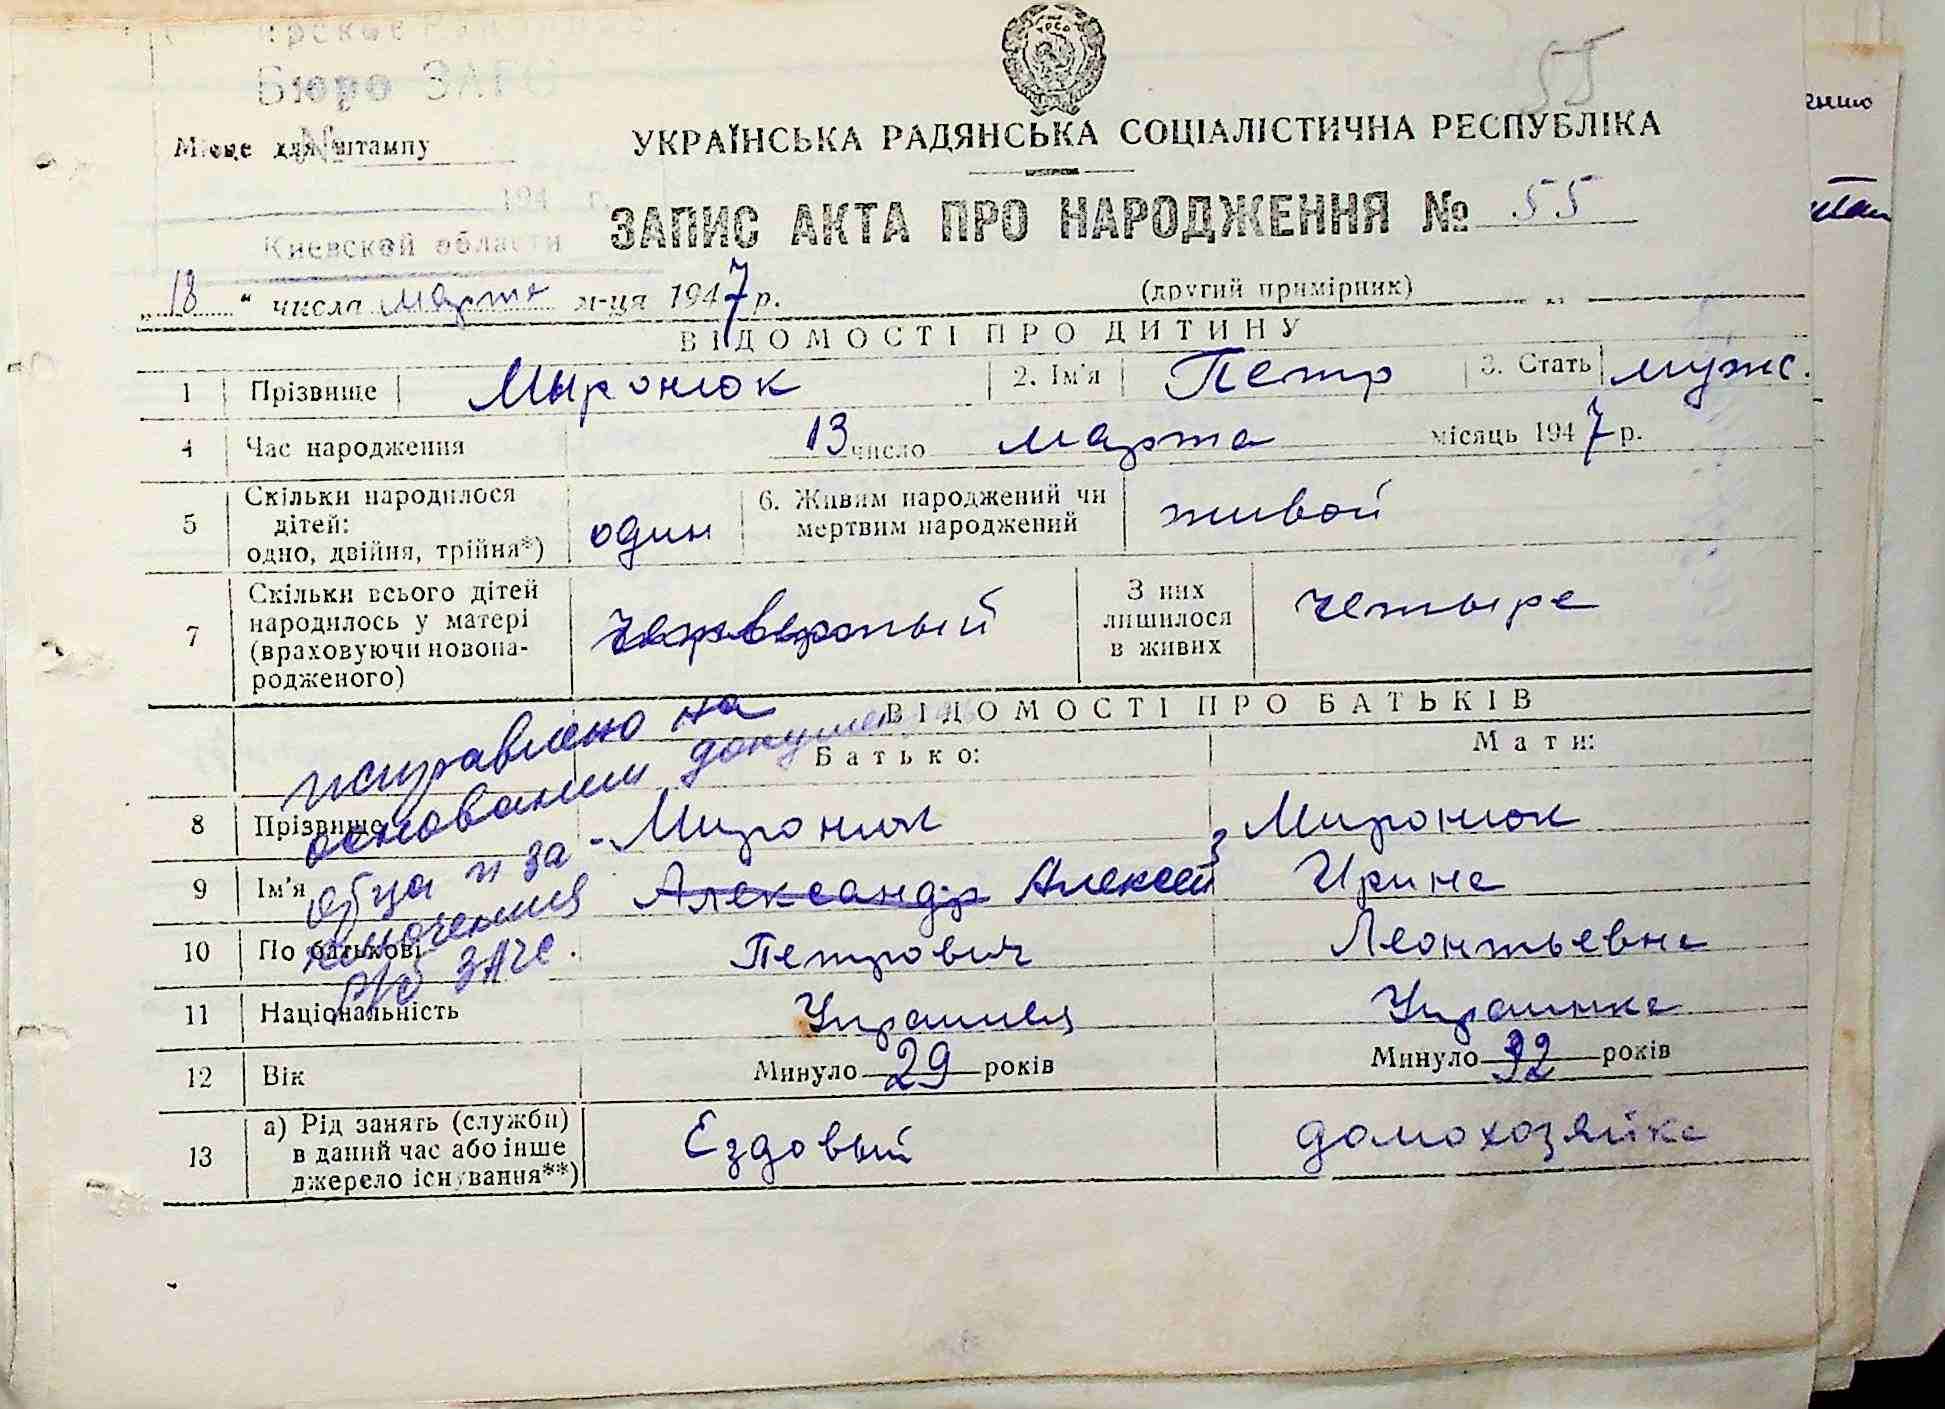 Бюро ЗАГС
55
Місце для штампу
№
УКРАЇНСЬКА РАДЯНСЬКА СОЦІАЛІСТИЧНА РЕСПУБЛІКА
194 г.
ЗАПИС АКТА ПРО НАРОДЖЕННЯ № 55
Киевской области
„18“ числа марта м-ця 1947 р. (другий примірник)
ВІДОМОСТІ ПРО ДИТИНУ
1 Прізвище Мыронюк 2. Ім'я Петр 3. Стать мужс.
4 Час народження 13 число марта місяць 1947 р.
5 Скільки народилося дітей: одно, двійня, трійня*) один 6. Живим народжений чи мертвим народжений живой
7 Скільки всього дітей народилось у матері (враховуючи новонародженого) четвертый З них лишилося в живих четыре
ВІДОМОСТІ ПРО БАТЬКІВ
Батько: Мати:
исправлено на
основании документов
отца и за-
ключения
р/б ЗАГС.
8 Прізвище Миронюк Миронюк
9 Ім'я Александр Алексей Ирина
10 По батькові Петрович Леонтьевна
11 Національність Украинец Украинка
12 Вік Минуло 29 років Минуло 32 років
13 а) Рід занять (служби) в даний час або інше джерело існування**) Ездовый домохозяйка